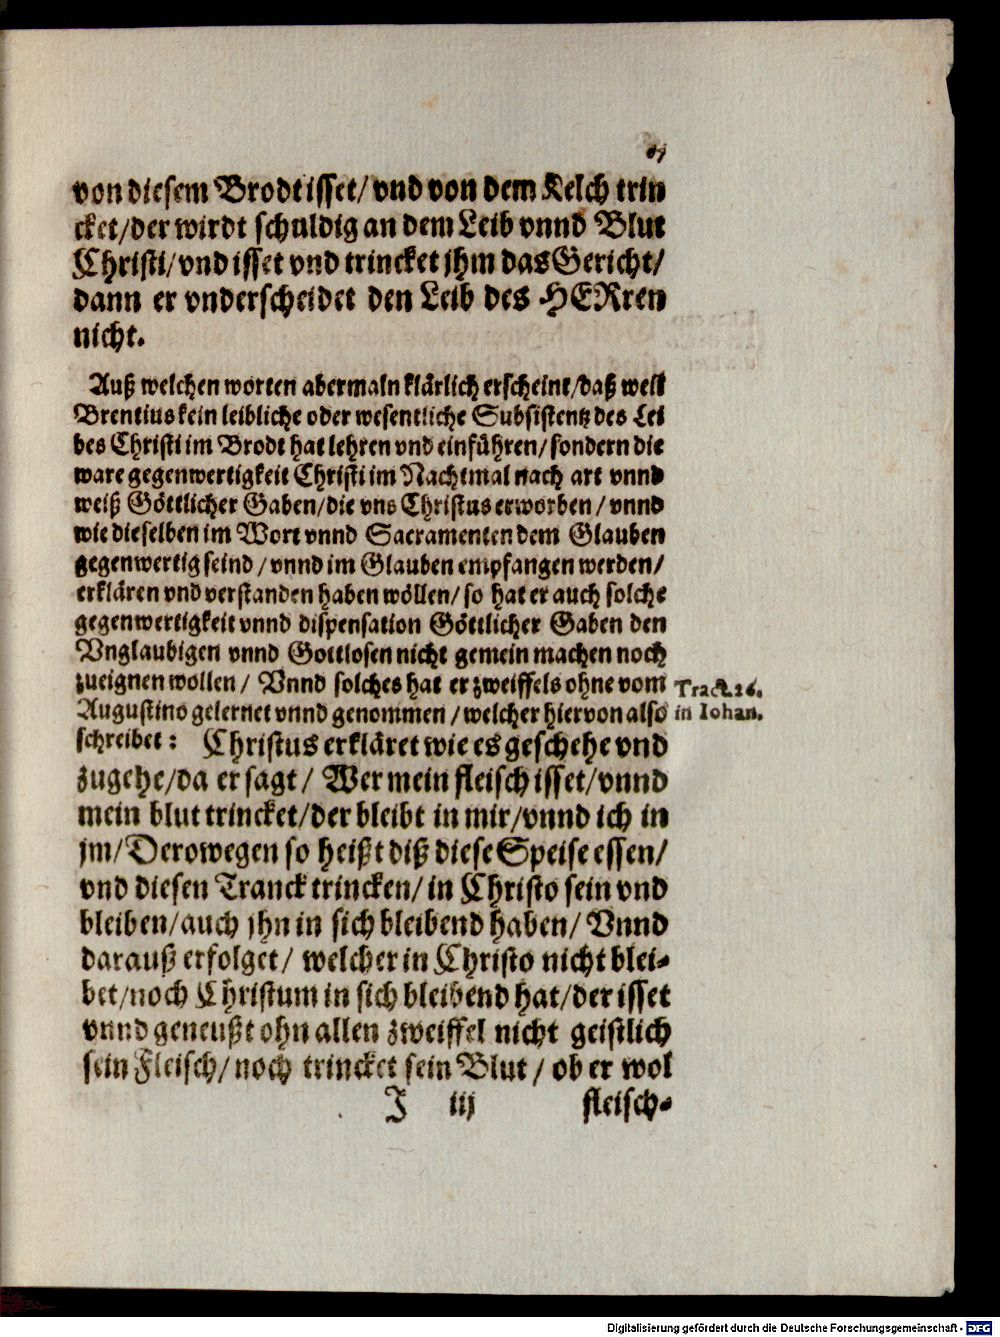 von diesem Brodt isset/ vnd von dem Kelch trin
cket/ der wirdt schuldig an dem Leib vnnd Blut
Christi/ vnd isset vnd trincket jhm das Gericht/
dann er vnderscheidet den Leib des HERren
nicht.
Auß welchen worten abermaln klärlich erscheint/ daß weil
Brentius kein leibliche oder wesentliche Subsistentz des Lei
bes Christi im Brodt hat lehren vnd einführen/ sondern die
ware gegenwertigkeit Christi im Nachtmal nach art vnnd
weiß Göttlicher Gaben/ die vns Christus erworben/ vnnd
wie dieselben im Wort vnnd Sacramenten dem Glauben
gegenwertig seind/ vnnd im Glauben empfangen werden/
erklären vnd verstanden haben wöllen/ so hat er auch solche
gegenwertigkeit vnnd dispensation Göttlicher Gaben den
Vnglaubigen vnnd Gottlosen nicht gemein machen noch
zueignen wollen/ Vnnd solches hat er zweiffels ohne vom
Augustino gelernet vnnd genommen/ welcher hiervon also
Tract. 26.
in Iohan.
schreibet: Christus erkläret wie es geschehe vnd
zugehe/ da er sagt/ Wer mein fleisch isset/ vnnd
mein blut trincket/ der bleibt in mir/ vnnd ich in
jm/ Derowegen so heißt diß diese Speise essen/
vnd diesen Tranck trincken/ in Christo sein vnd
bleiben/ auch jhn in sich bleibend haben/ Vnnd
darauß erfolget/ welcher in Christo nicht blei-
bet/ noch Christum in sich bleibend hat/ der isset
vnnd geneußt ohn allen zweiffel nicht geistlich
sein Fleisch/ noch trincket sein Blut/ ob er wol
J iij fleisch-
Digitalisierung gefördert durch die Deutsche Forschungsgemeinschaft - DFG